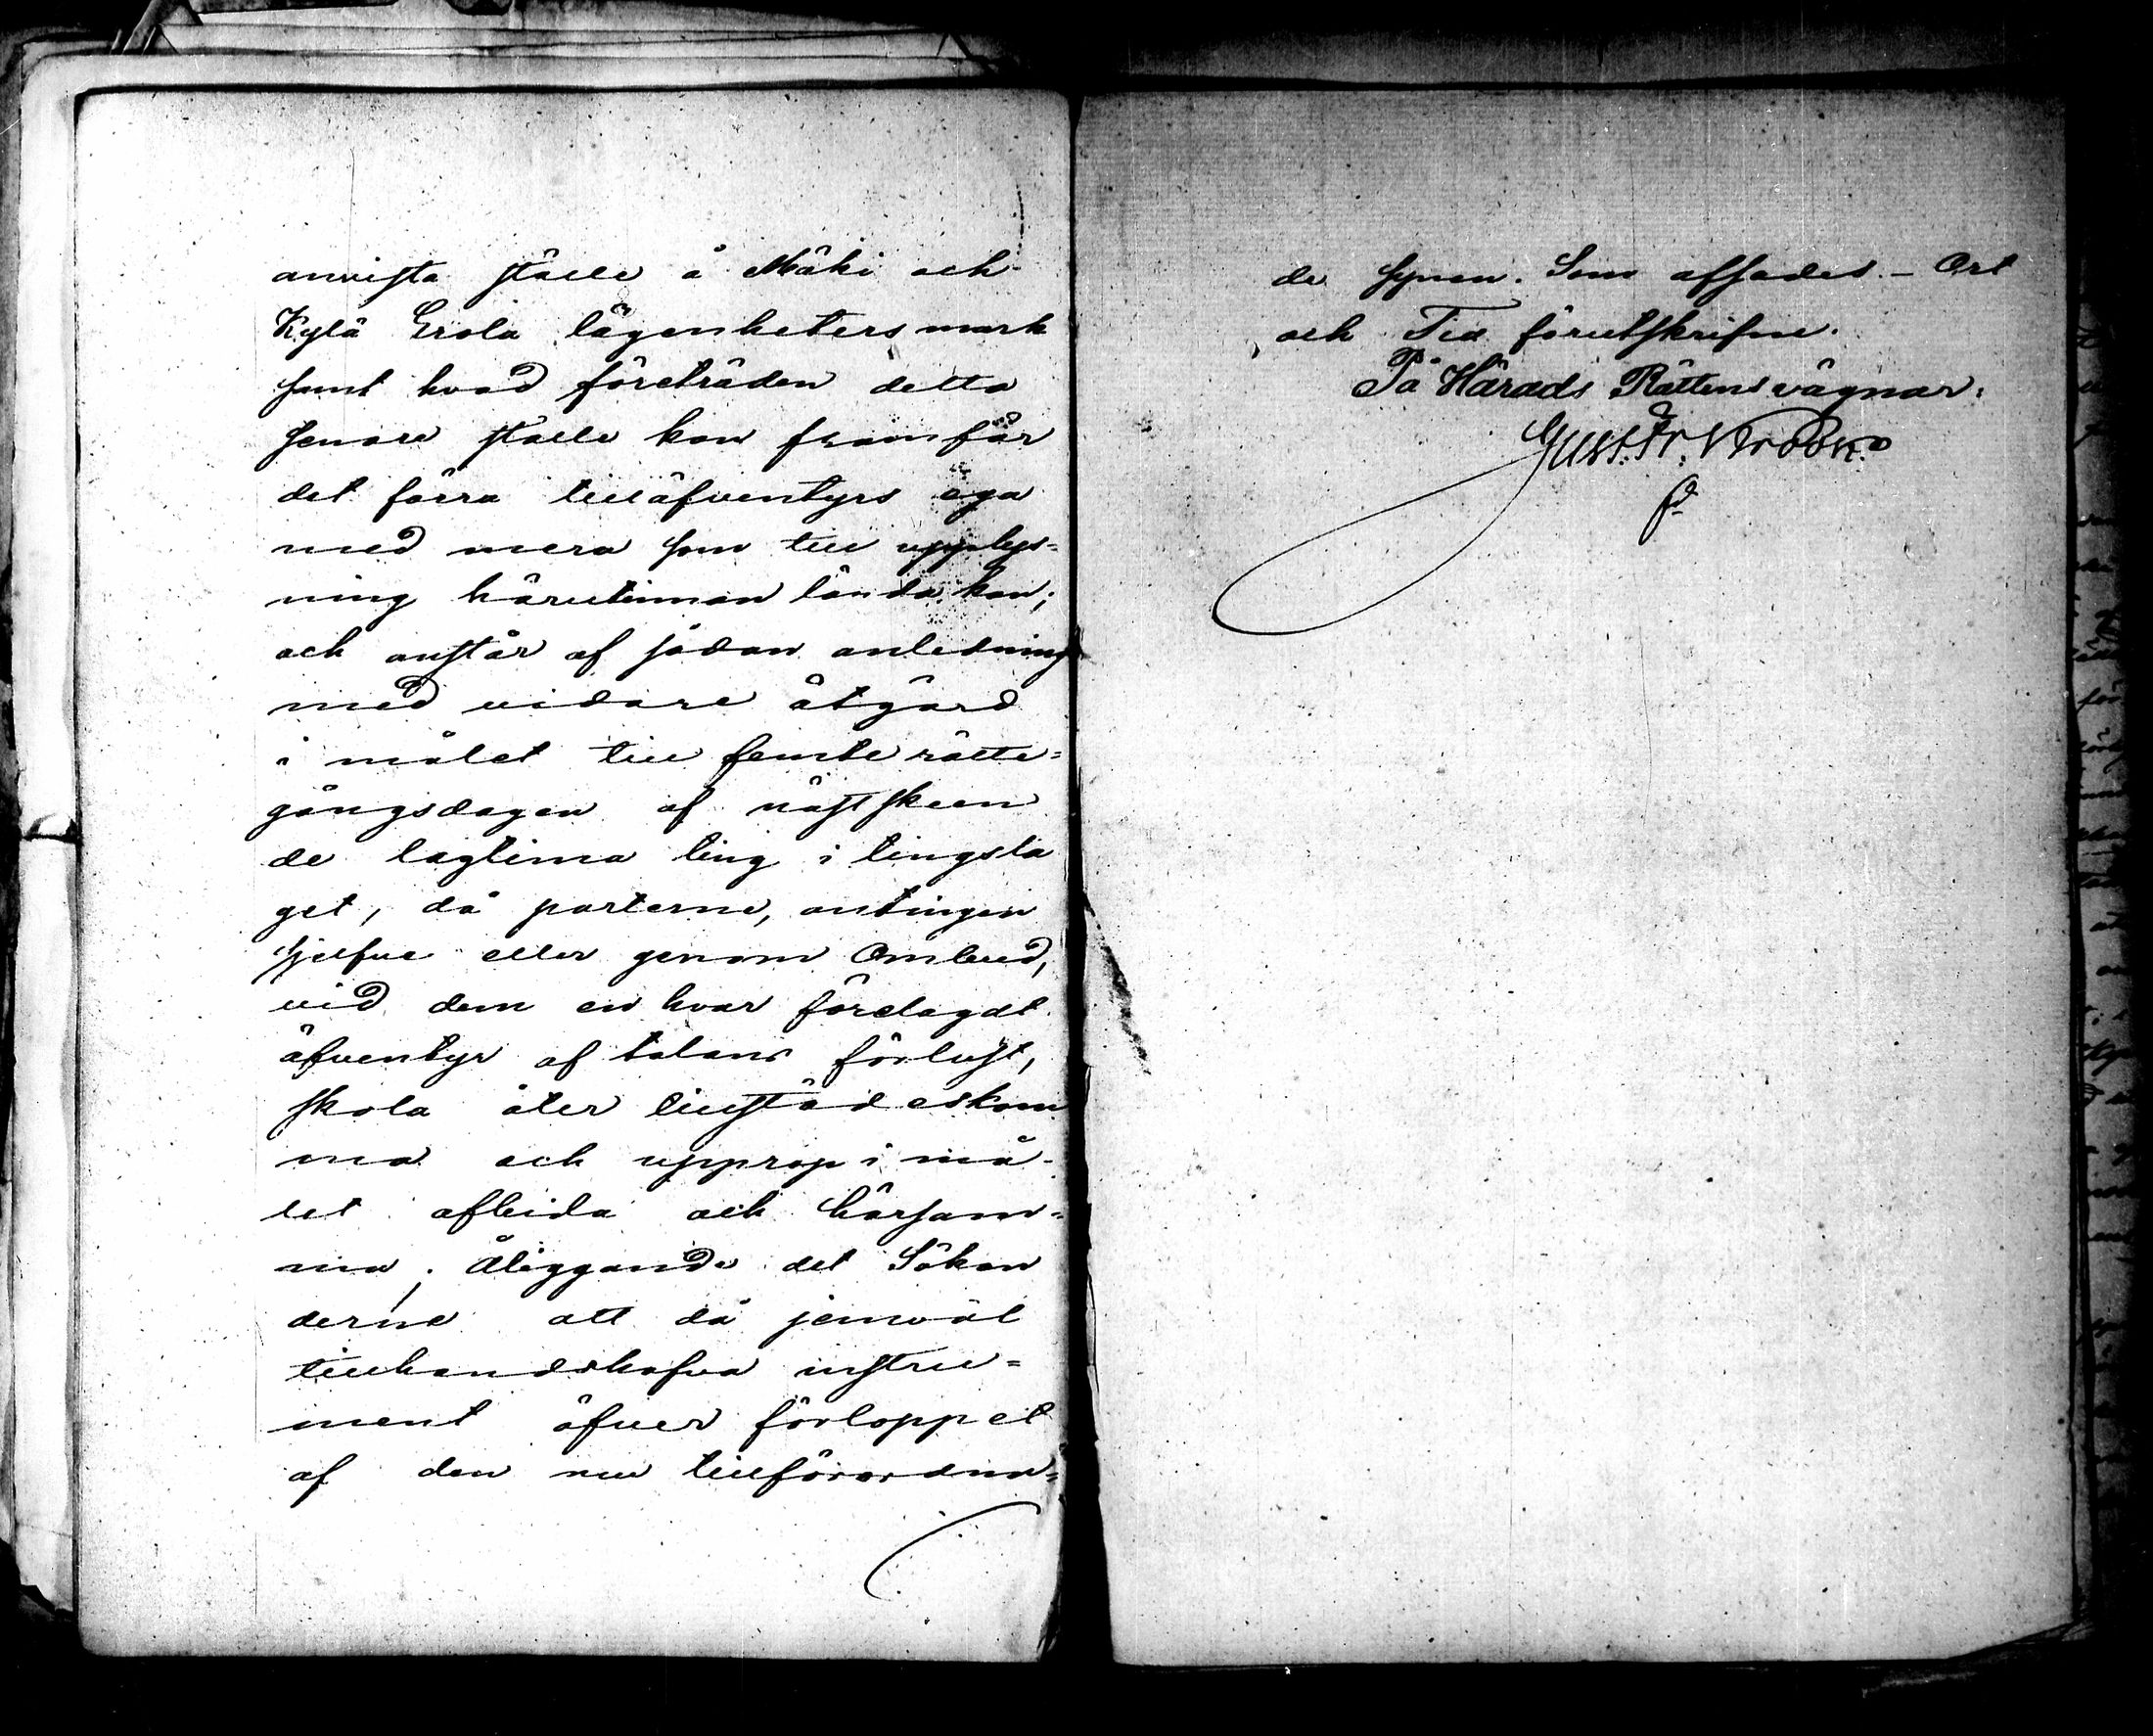 anvista ställe å Mäki och
Kylä Erola lägenheters mark
samt hvad företräden detta
senare ställe kan framför
det förra tilläfventyrs äga
med mera som till upplys=
ning härutinnan lända kan;
och anstår af sådan anledning
med vidare åtgärd
i målet till femte rätte=
gångsdagen af nästskeen
de lagtima ting i tingsla
get, då parterne, antingen
sjelfve eller genom Ombud,
vid dem en hvar förelagdt
äfventyr af talans förlust,
skola åter tillstädeskom
ma och upprop i må-
let afbida och hörsam=
ma; Åliggande det Sökan
derne att då jemväl
tillhandahafva instru=
ment öfver förloppet
af den nu tillförordna=
de synen. Som afsades. - Ort
och Tid förutskrifne.
På Härads Rättens vägnar:
Gust. Fr.